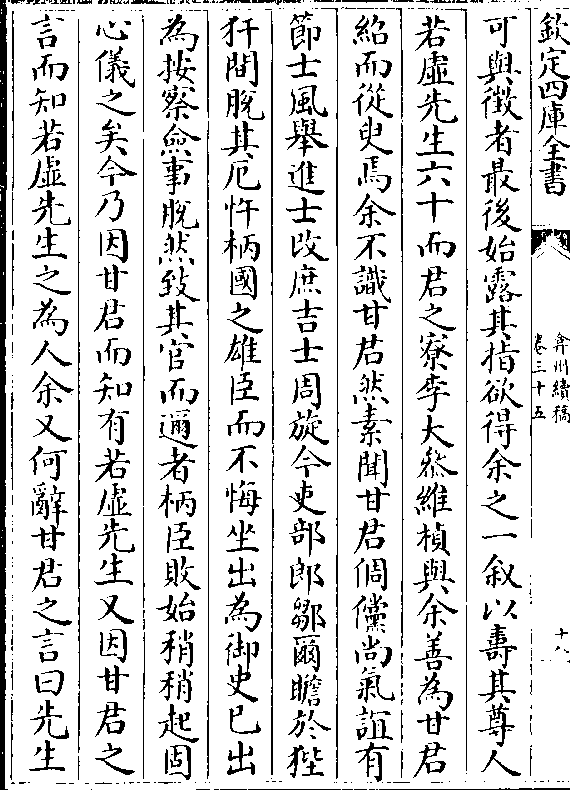 欽定四庫全書
弇州續稿
卷三十五
十八
可與徵者最後始露其指欲得余之一叙以壽其尊人
若虛先生六十而君之寮李大叅維楨與余善為甘君
紹而從臾焉余不識甘君然素聞甘君倜儻尚氣誼有
節士風舉進士改庶吉士周旋今吏部郎鄒爾瞻於狴
犴間脫其厄忤柄國之雄臣而不悔坐出為御史已出
為按察僉事脫然致其官而邇者柄臣敗始稍稍起固
心儀之矣今乃因甘君而知有若虛先生又因甘君之
言而知若虛先生之為人余又何辭甘君之言曰先生